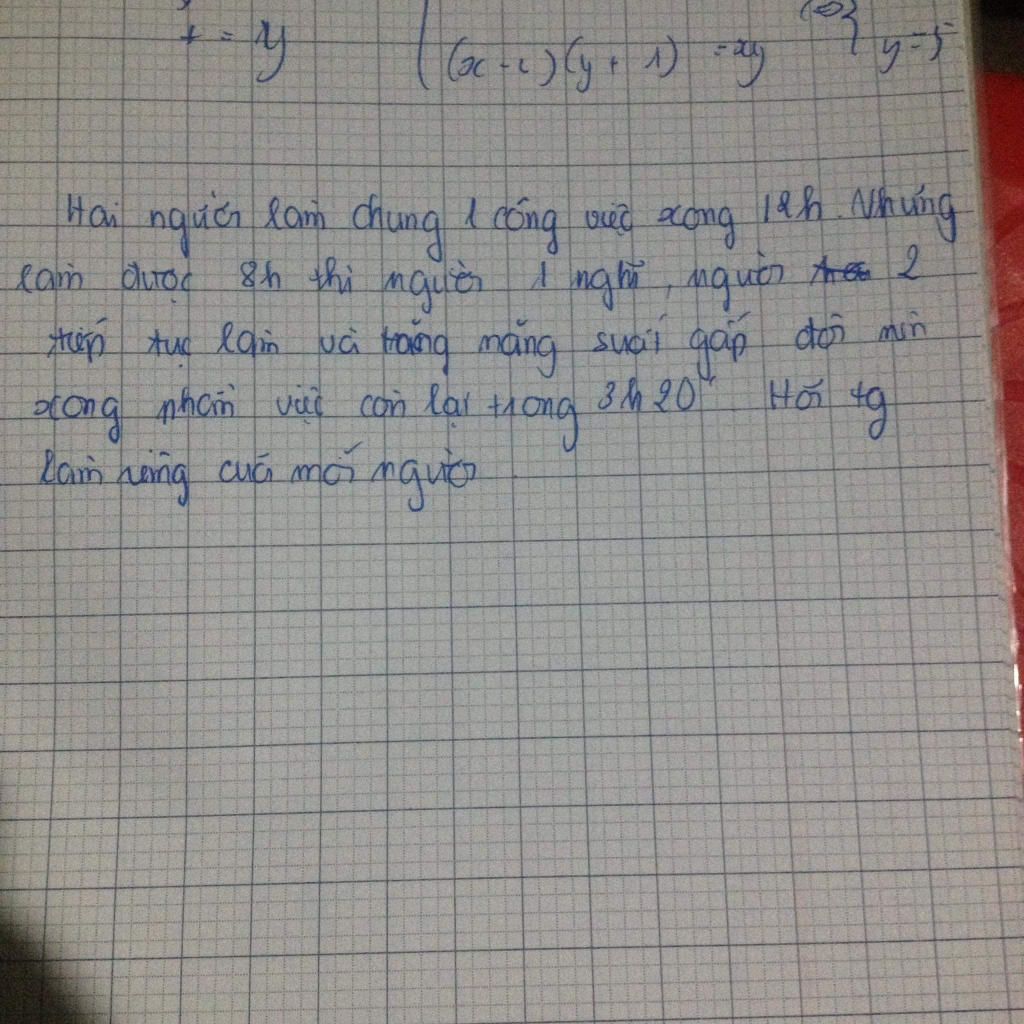 x = y (x - 2)(y + 1) = xy (=) { y = 5
Hai người làm chung 1 công việc xong 12h. Nhưng
làm được 8h thì người 1 nghỉ, người 2
tiếp tục làm và tăng năng suất gấp đôi nên
xong phần việc còn lại trong 3h20' Hỏi tg
làm riêng của mỗi người